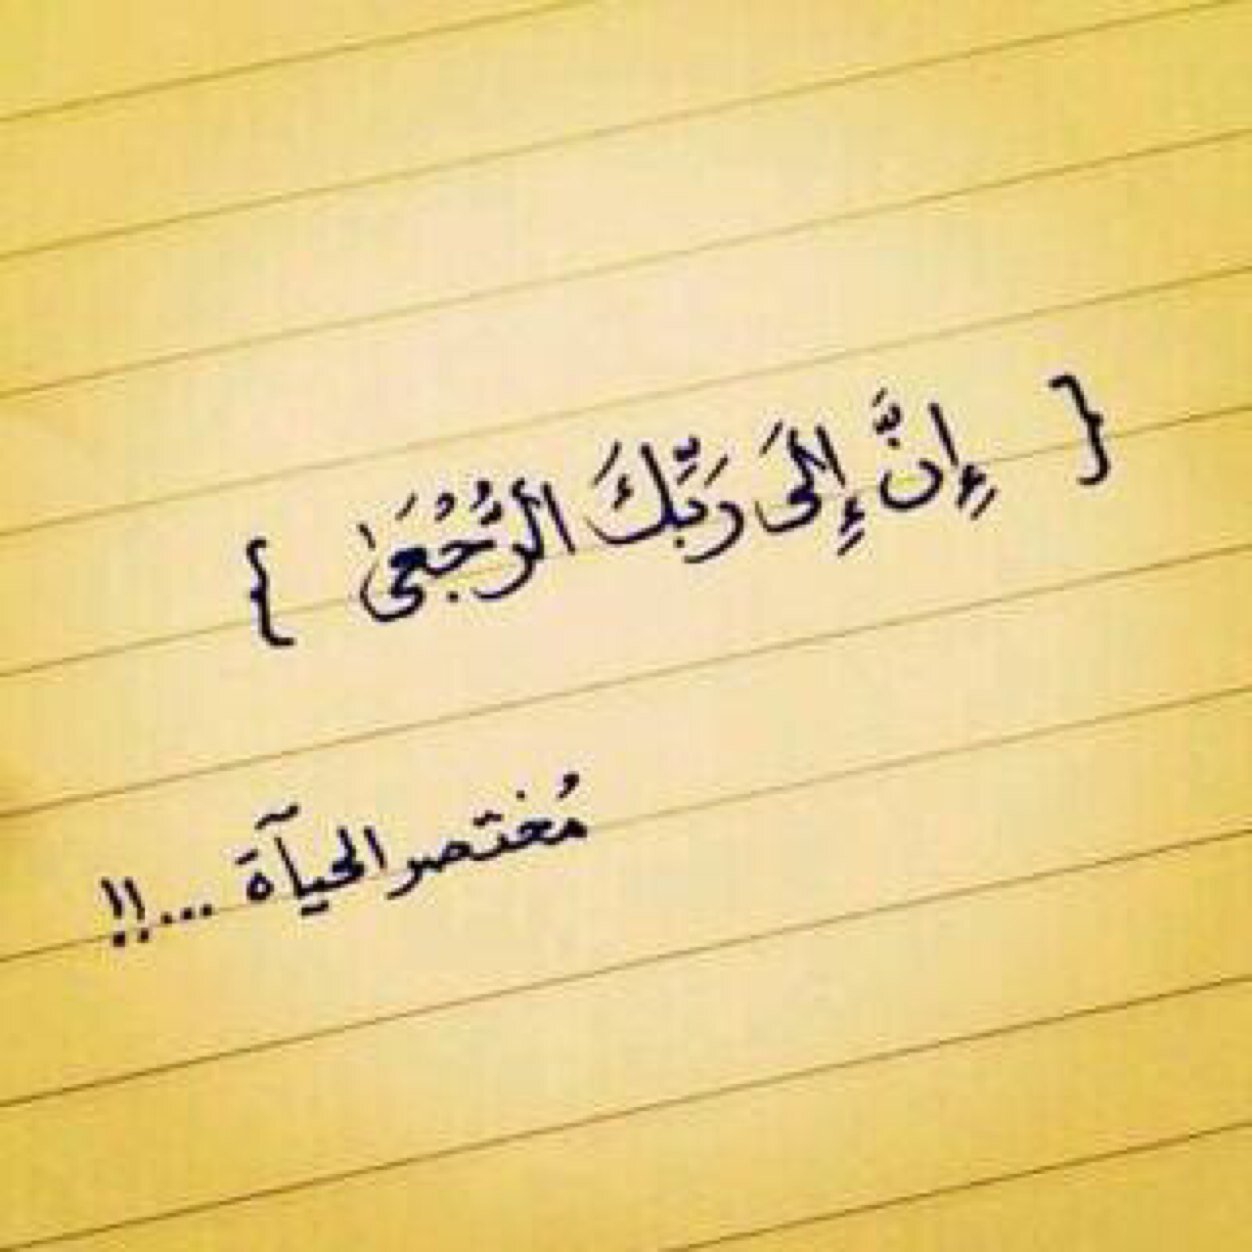 { إِنَّ إِلَىَ رَبِّكَ الرُّجُعَىٰ }
مُختصر الحيآةَ ...!!